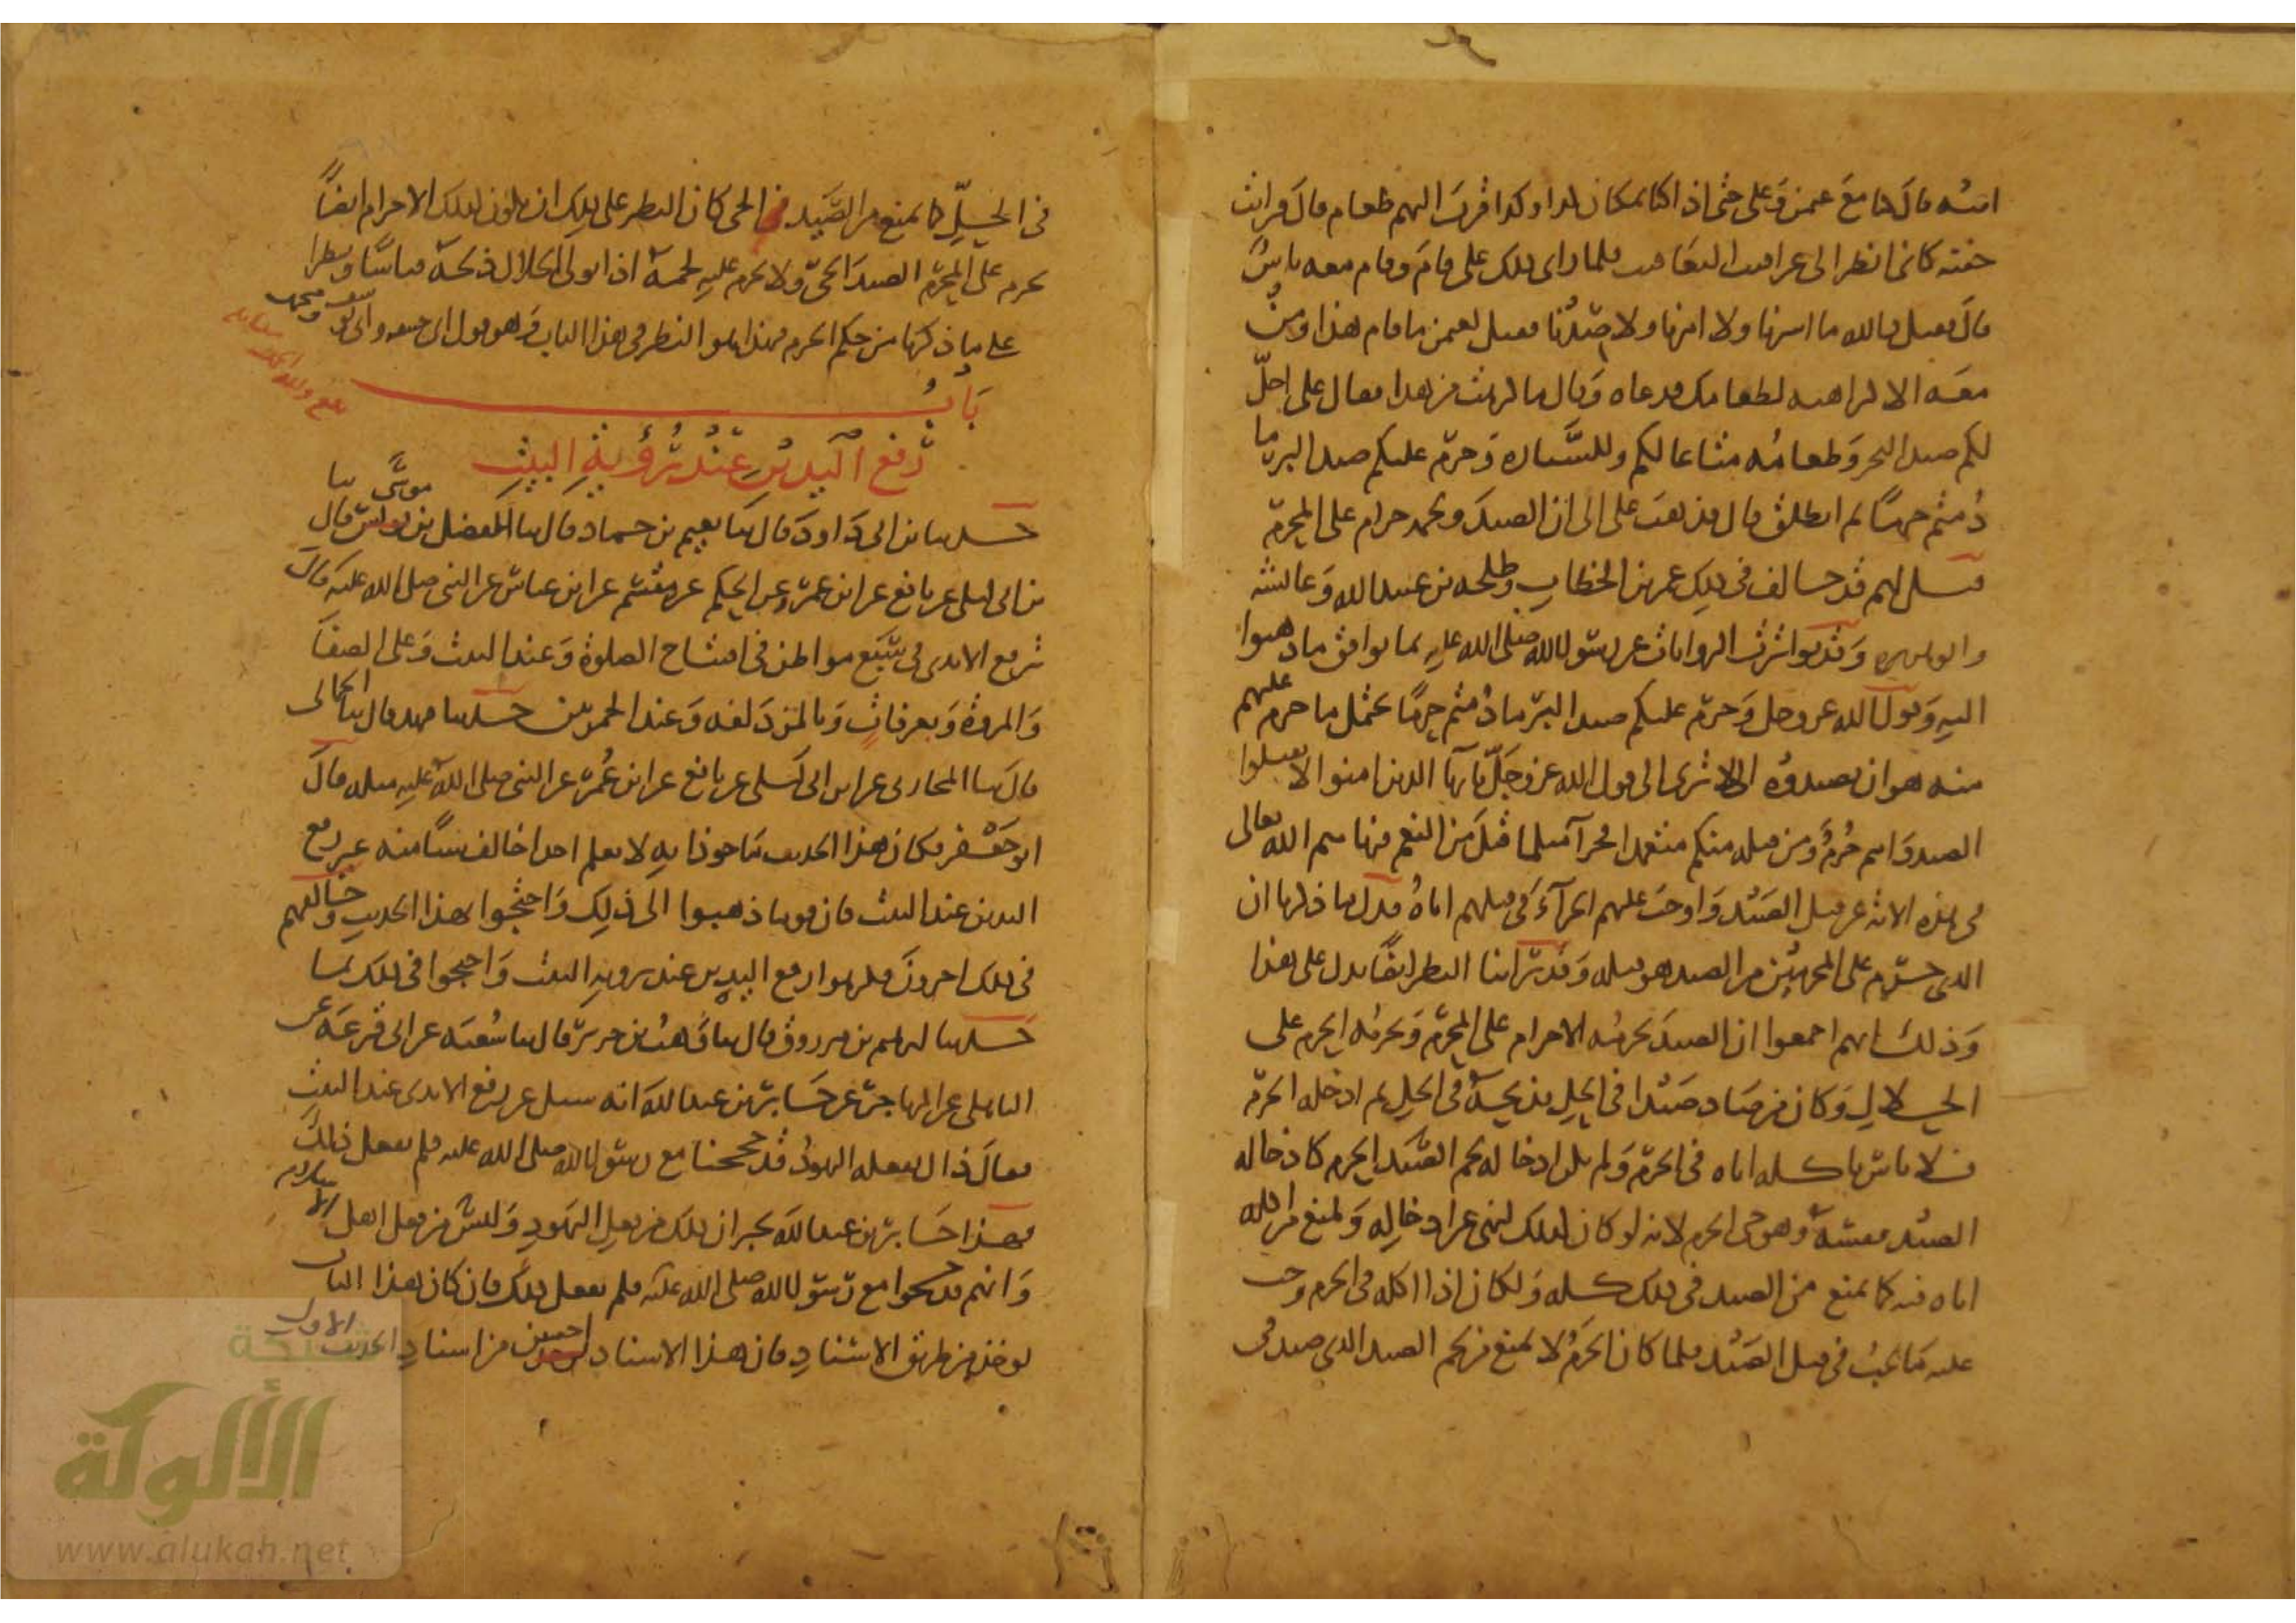 ابنه قال حج مع عثمن وعلى حتى اذا كنا بمكان كذا وكذا قرب اليهم طعام قال فرايت
جفنة كانى انظر الى عراقيب اليعاقيب فلما راى ذلك على قام وقام معه ناس
قال فقيل والله ما اشرنا ولا امرنا ولا صدنا فقيل لعثمن ما قام هذا ومن
معه الا كراهية لطعامك فدعاه وقال ما كرهت من هذا فقال على احل
لكم صيد البحر وطعامه متاعا لكم وللسيارة وحرم عليكم صيد البر ما
دمتم حرما ثم انطلق قال فذهب على الى ان الصيد ولحمه حرام على المحرم
قيل لهم قد خالفه فى ذلك عمر بن الخطاب وطلحة بن عبيد الله وعائشة
وابو هريرة وقد تواترت الروايات عن رسول الله صلى الله عليه بما يوافق ما ذهبوا
اليه وقول الله عز وجل وحرم عليكم صيد البر ما دمتم حرما يحتمل ما حرم عليهم
منه هو ان يصيدوه الا ترى الى قول الله عز وجل يا ايها الذين امنوا لا تقتلوا
الصيد وانتم حرم ومن قتله منكم متعمدا فجزآء مثل ما قتل من النعم فنهاهم الله تعالى
فى هذه الاية عن قتل الصيد واوجب عليهم الجزآء فى قتلهم اياه فدل ما ذكرنا ان
الذى حرم على المحرمين من الصيد هو قتله وقد راينا النظر ايضا يدل على هذا
وذلك انهم اجمعوا ان الصيد يحرمه الاحرام على المحرم ويحرمه الحرم على
الحلال وكان من صاد صيدا فى الحل فذبحه فى الحل ثم ادخله الحرم
فلا باس باكله اياه فى الحرم ولم يكن ادخاله لحم الصيد الحرم كادخاله
الصيد نفسه وهو حى الحرم لانه لو كان كذلك لنهى عن ادخاله ولمنع من اكله
اياه فيه كما يمنع من الصيد فى ذلك كله ولكان اذا اكله فى الحرم وجب
عليه ما يجب فى قتل الصيد فلما كان الحرم لا يمنع من لحم الصيد الذى صيد فى
فى الحل كما يمنع من الصيد الحى كان النظر على ذلك ان يكون كذلك الاحرام ايضا
يحرم على المحرم الصيد الحى ولا يحرم عليه لحمه اذا تولى الحلال ذبحه قياسا ونظرا
على ما ذكرنا من حكم الحرم فهذا هو النظر فى هذا الباب وهو قول ابى حنيفة وابى يوسف ومحمد
باب
رفع اليدين عند رؤية البيت
حدثنا ابن ابى داود قال ثنا نعيم بن حماد قال ثنا الفضل بن موسى قال ثنا
ابن ابى ليلى عن نافع عن ابن عمر وعن الحكم عن مقسم عن ابن عباس عن النبى صلى الله عليه قال
ترفع الايدى فى سبع مواطن فى افتتاح الصلوة وعند البيت وعلى الصفا
والمروة وبعرفات وبالمزدلفة وعند الجمرتين حدثنا فهد قال ثنا الحمانى
قال ثنا المحاربى عن ابن ابى ليلى عن نافع عن ابن عمر عن النبى صلى الله عليه مثله قال
ابو جعفر فكان هذا الحديث ماخوذا به لا نعلم احدا خالف شيئا منه غير رفع
اليدين عند البيت فان قوما ذهبوا الى ذلك واحتجوا بهذا الحديث وخالفهم
فى ذلك اخرون فكرهوا رفع اليدين عند رؤية البيت واحتجوا فى ذلك بما
حدثنا ابرهيم بن مرزوق قال ثنا وهب بن جرير قال ثنا شعبة عن ابى قزعة عن
الباهلى عن المهاجر عن جابر بن عبد الله انه سئل عن رفع الايدى عند البيت
فقال ذاك يفعله اليهود قد حججنا مع رسول الله صلى الله عليه فلم يفعل ذلك
فهذا جابر بن عبد الله يخبر ان ذلك من فعل اليهود وليس من فعل اهل الاسلام
وانهم قد حجوا مع رسول الله صلى الله عليه فلم يفعل ذلك فان كان هذا الباب
يؤخذ من طريق الاسناد فان هذا الاسناد احسن من اسناد الحديث الاول
شبكة
الألوكة
www.alukah.net